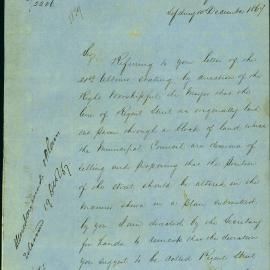 2206
Sydney 10 December 1867
Sir,
Referring to your letter of the
20th Ultimo stating by direction of the
Right Worshipful the Mayor that the
line of Regent Street as originally laid
out passes through a block of land, which
the Municipal Council are desirous of
selling and proposing that the position
of the street should be altered in the
manner shewn in a plan submitted
by you I am directed by the Secretary
for Lands to remark that the deviation
you suggest to be called Regent Street